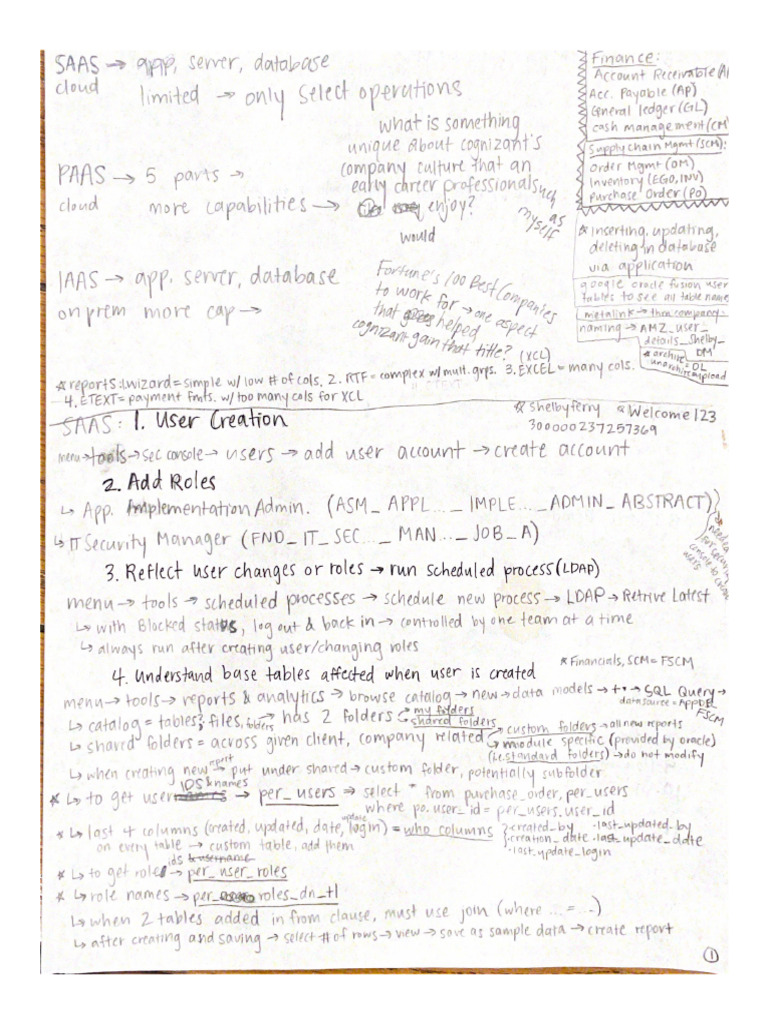 SAAS → app, server, database
cloud
limited → only select operations
PAAS → 5 parts →
cloud
more capabilities →
IAAS → app. server, database
on prem more cap →
what is something
unique about cognizant's
company culture that an
early career professional such
as
myself
enjoy?
would
Fortune's 100 Best Companies
to work for → one aspect
that helped
cognizant gain that title?
Finance:
Account Receivable (A
Acc. Payable (AP)
General ledger (GL)
cash management (CM
Supply chain Mgmt (SCM):
Order Mgmt (OM)
Inventory (EGO, INV)
Purchase Order (PO
* inserting, updating,
deleting in database
via application
google oracle fusion user
tables to see all table name
metalink → then company.
naming → AMZ_user_
details_Shelby_
DM
* archive
= DL
unarchive upload
(XCL)
* reports: 1. wizard = simple w/ low # of cols. 2. RTF = complex w/ mult. grps. 3. EXCEL = many cols.
4. ETEXT = payment fmts. w/ too many cols for XCL
SAAS: 1. User Creation
* Shelbyferry * Welcome123
300000237257369
menu → tools → sec console → users → add user account → create account
2. Add Roles
↳ App. Implementation Admin. (ASM_ APPL..._ IMPLE..._ ADMIN_ ABSTRACT)
↳ IT Security Manager (FND_ IT_ SEC..._ MAN..._ JOB_ A)
needed
for security
console to create
users
3. Reflect user changes or roles → run scheduled process (LDAP)
menu → tools → scheduled processes → schedule new process → LDAP → Retrive Latest
↳ with Blocked status, log out & back in → controlled by one team at a time
↳ always run after creating user/changing roles
4. Understand base tables affected when user is created
* Financials, SCM = FSCM
menu → tools → reports & analytics → browse catalog → new → data models → + • → SQL Query →
data source = APPDB_
FSCM
↳ catalog = tables, files, folders → has 2 folders
my folders
shared folders
↳ shared folders = across given client, company related
custom folders → all new reports
module specific (provided by oracle)
(i.e. standard folders) → do not modify
↳ when creating new report → put under shared → custom folder, potentially subfolder
IDS & names
* ↳ to get user → per_users → select * from purchase_order, per_users
where po.user_id = per_users.user_id
* ↳ last 4 columns (created, updated, date, update login) = who columns
on every table → custom table, add them
• created_by • last_updated_by
• creation_date • last_update_date
• last_update_login
ids & username
* ↳ to get role → per_user_roles
* ↳ role names → per_ roles_dn_tl
↳ when 2 tables added in from clause, must use join (where ... = ...)
↳ after creating and saving → select # of rows → view → save as sample data → create report
1